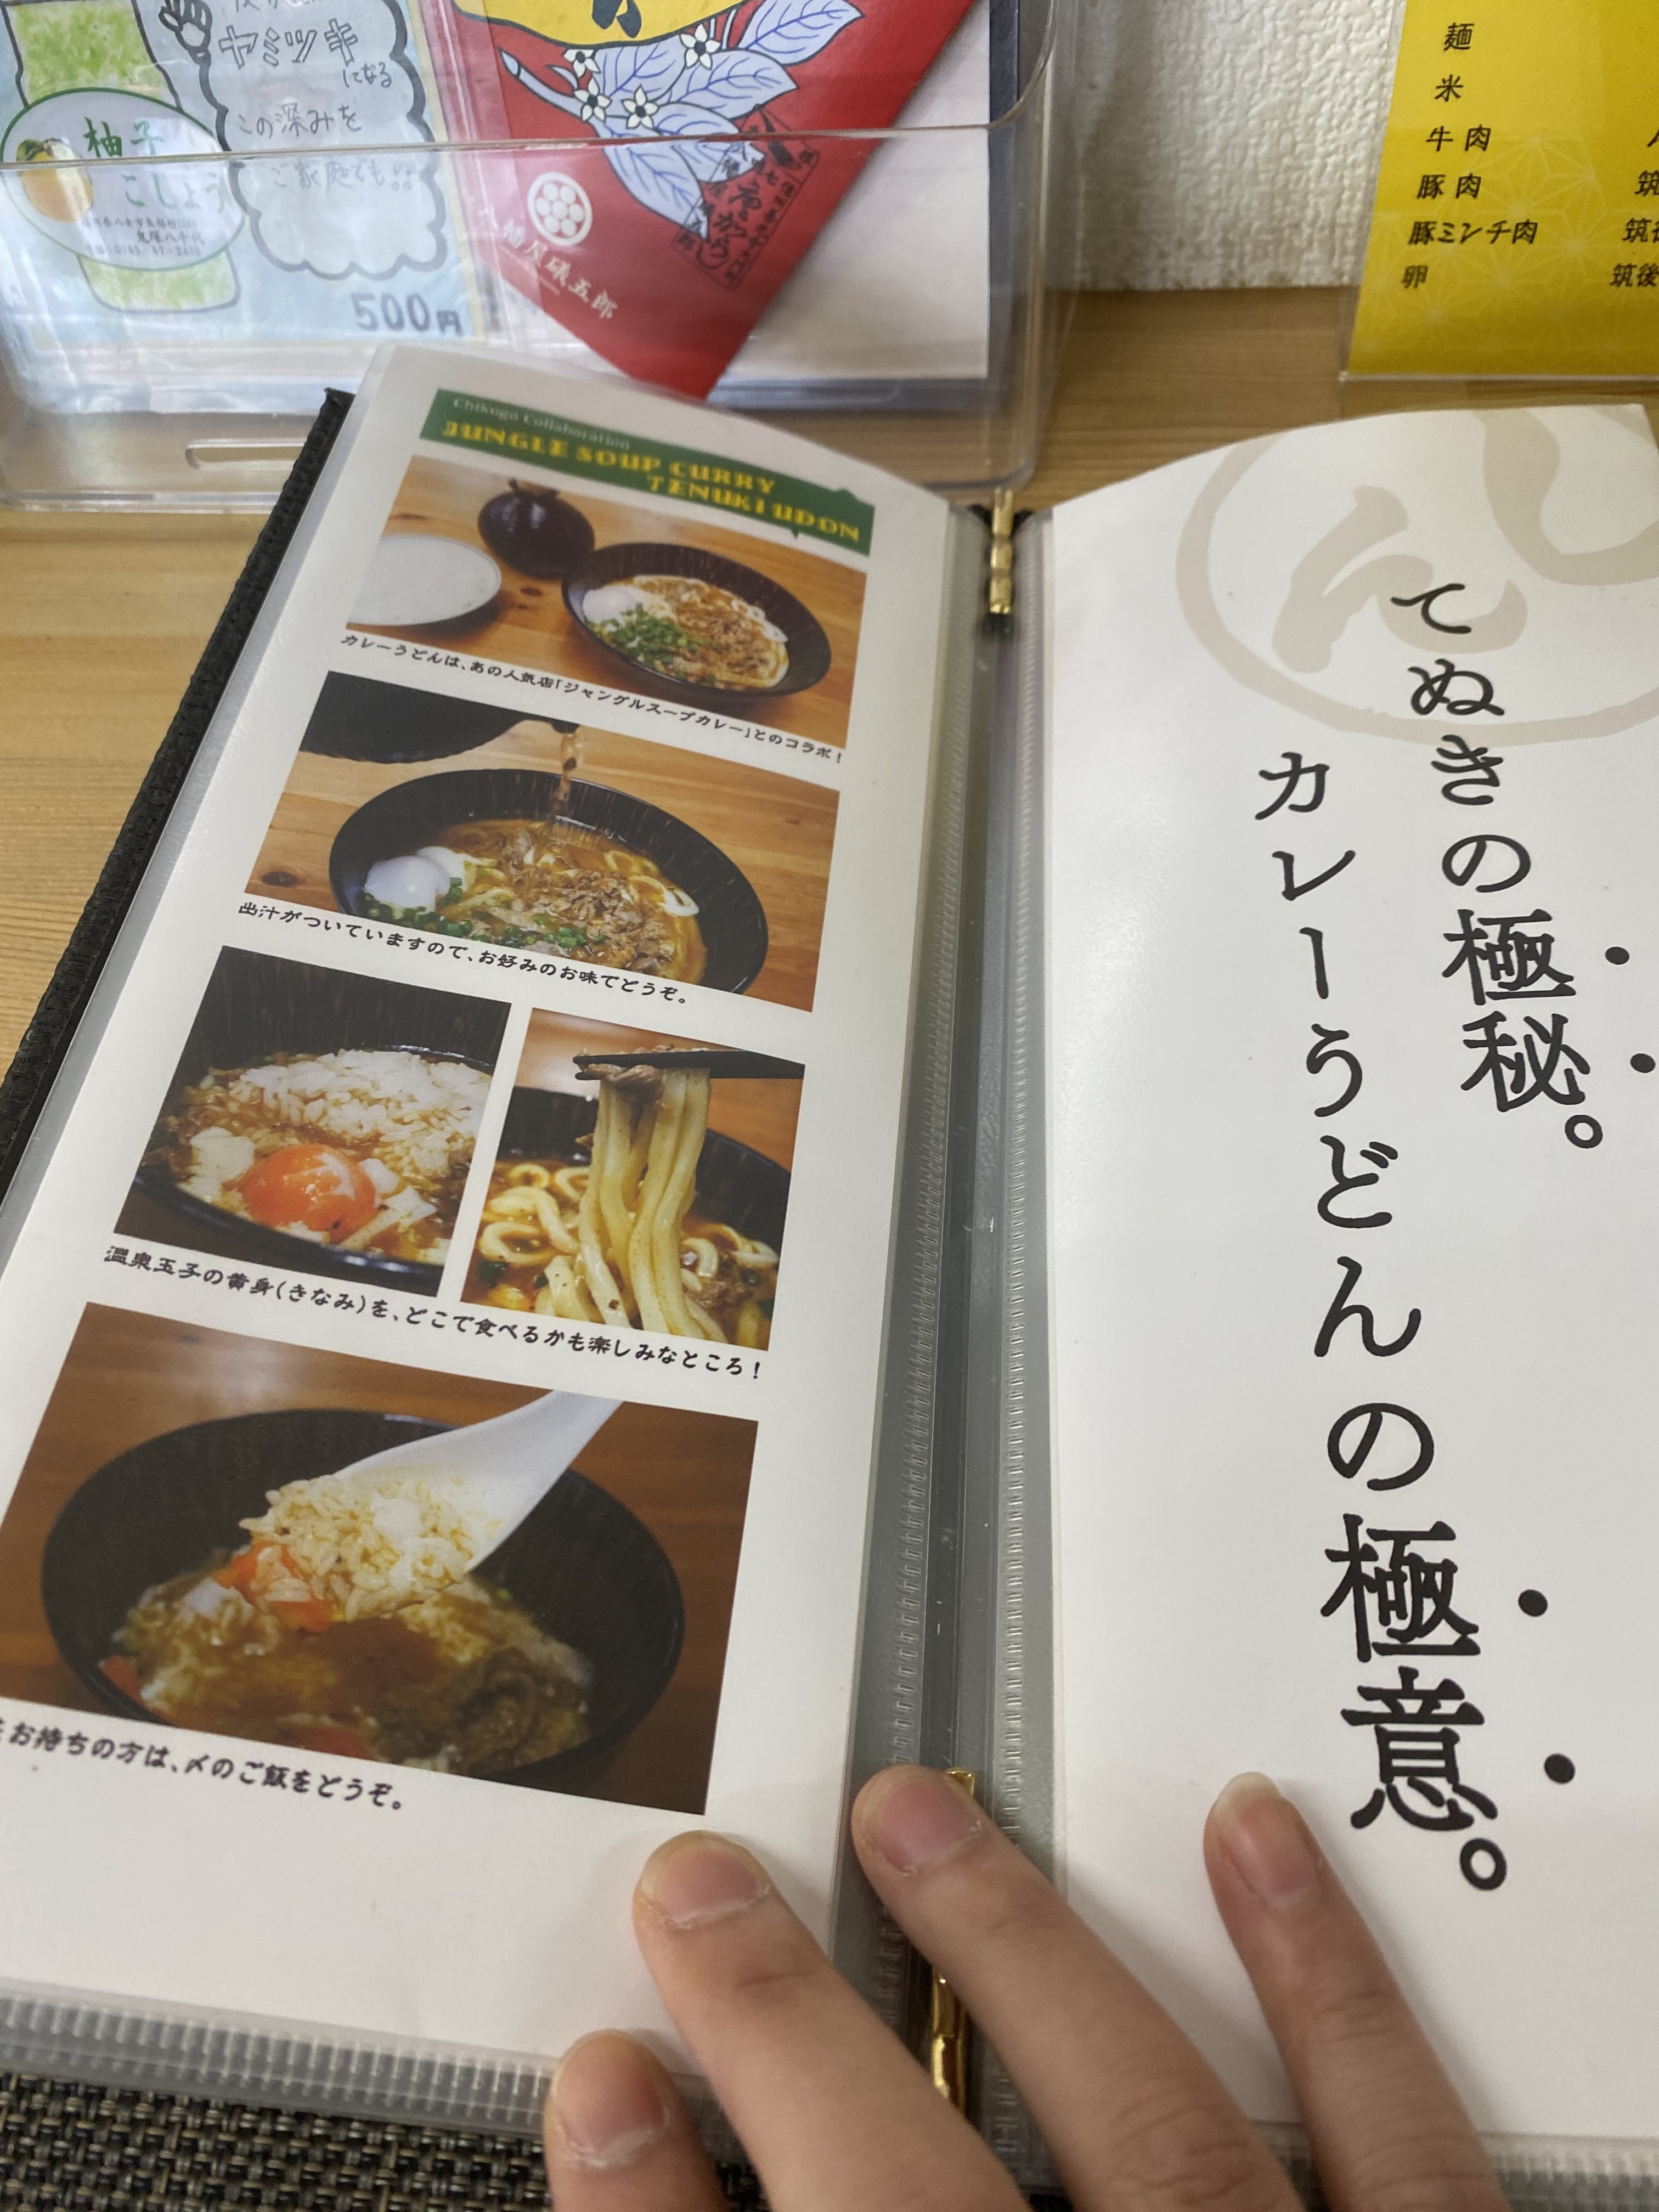 ヤミツキ
になる
この深みを
ご家庭でも
柚子
こしょう
500円
八幡屋礒五郎
麺
米
牛肉
豚肉
豚ミンチ肉
卵
筑後
Chikugo Collaboration
JUNGLE SOUP CURRY
TENUKI UDON
カレーうどんは、あの人気店「ジャングルスープカレー」とのコラボ！
出汁がついていますので、お好みのお味でどうぞ。
温泉玉子の黄身(きなみ)を、どこで食べるかも楽しみなところ！
お持ちの方は、〆のご飯をどうぞ。
てぬきの極秘。
カレーうどんの極意。